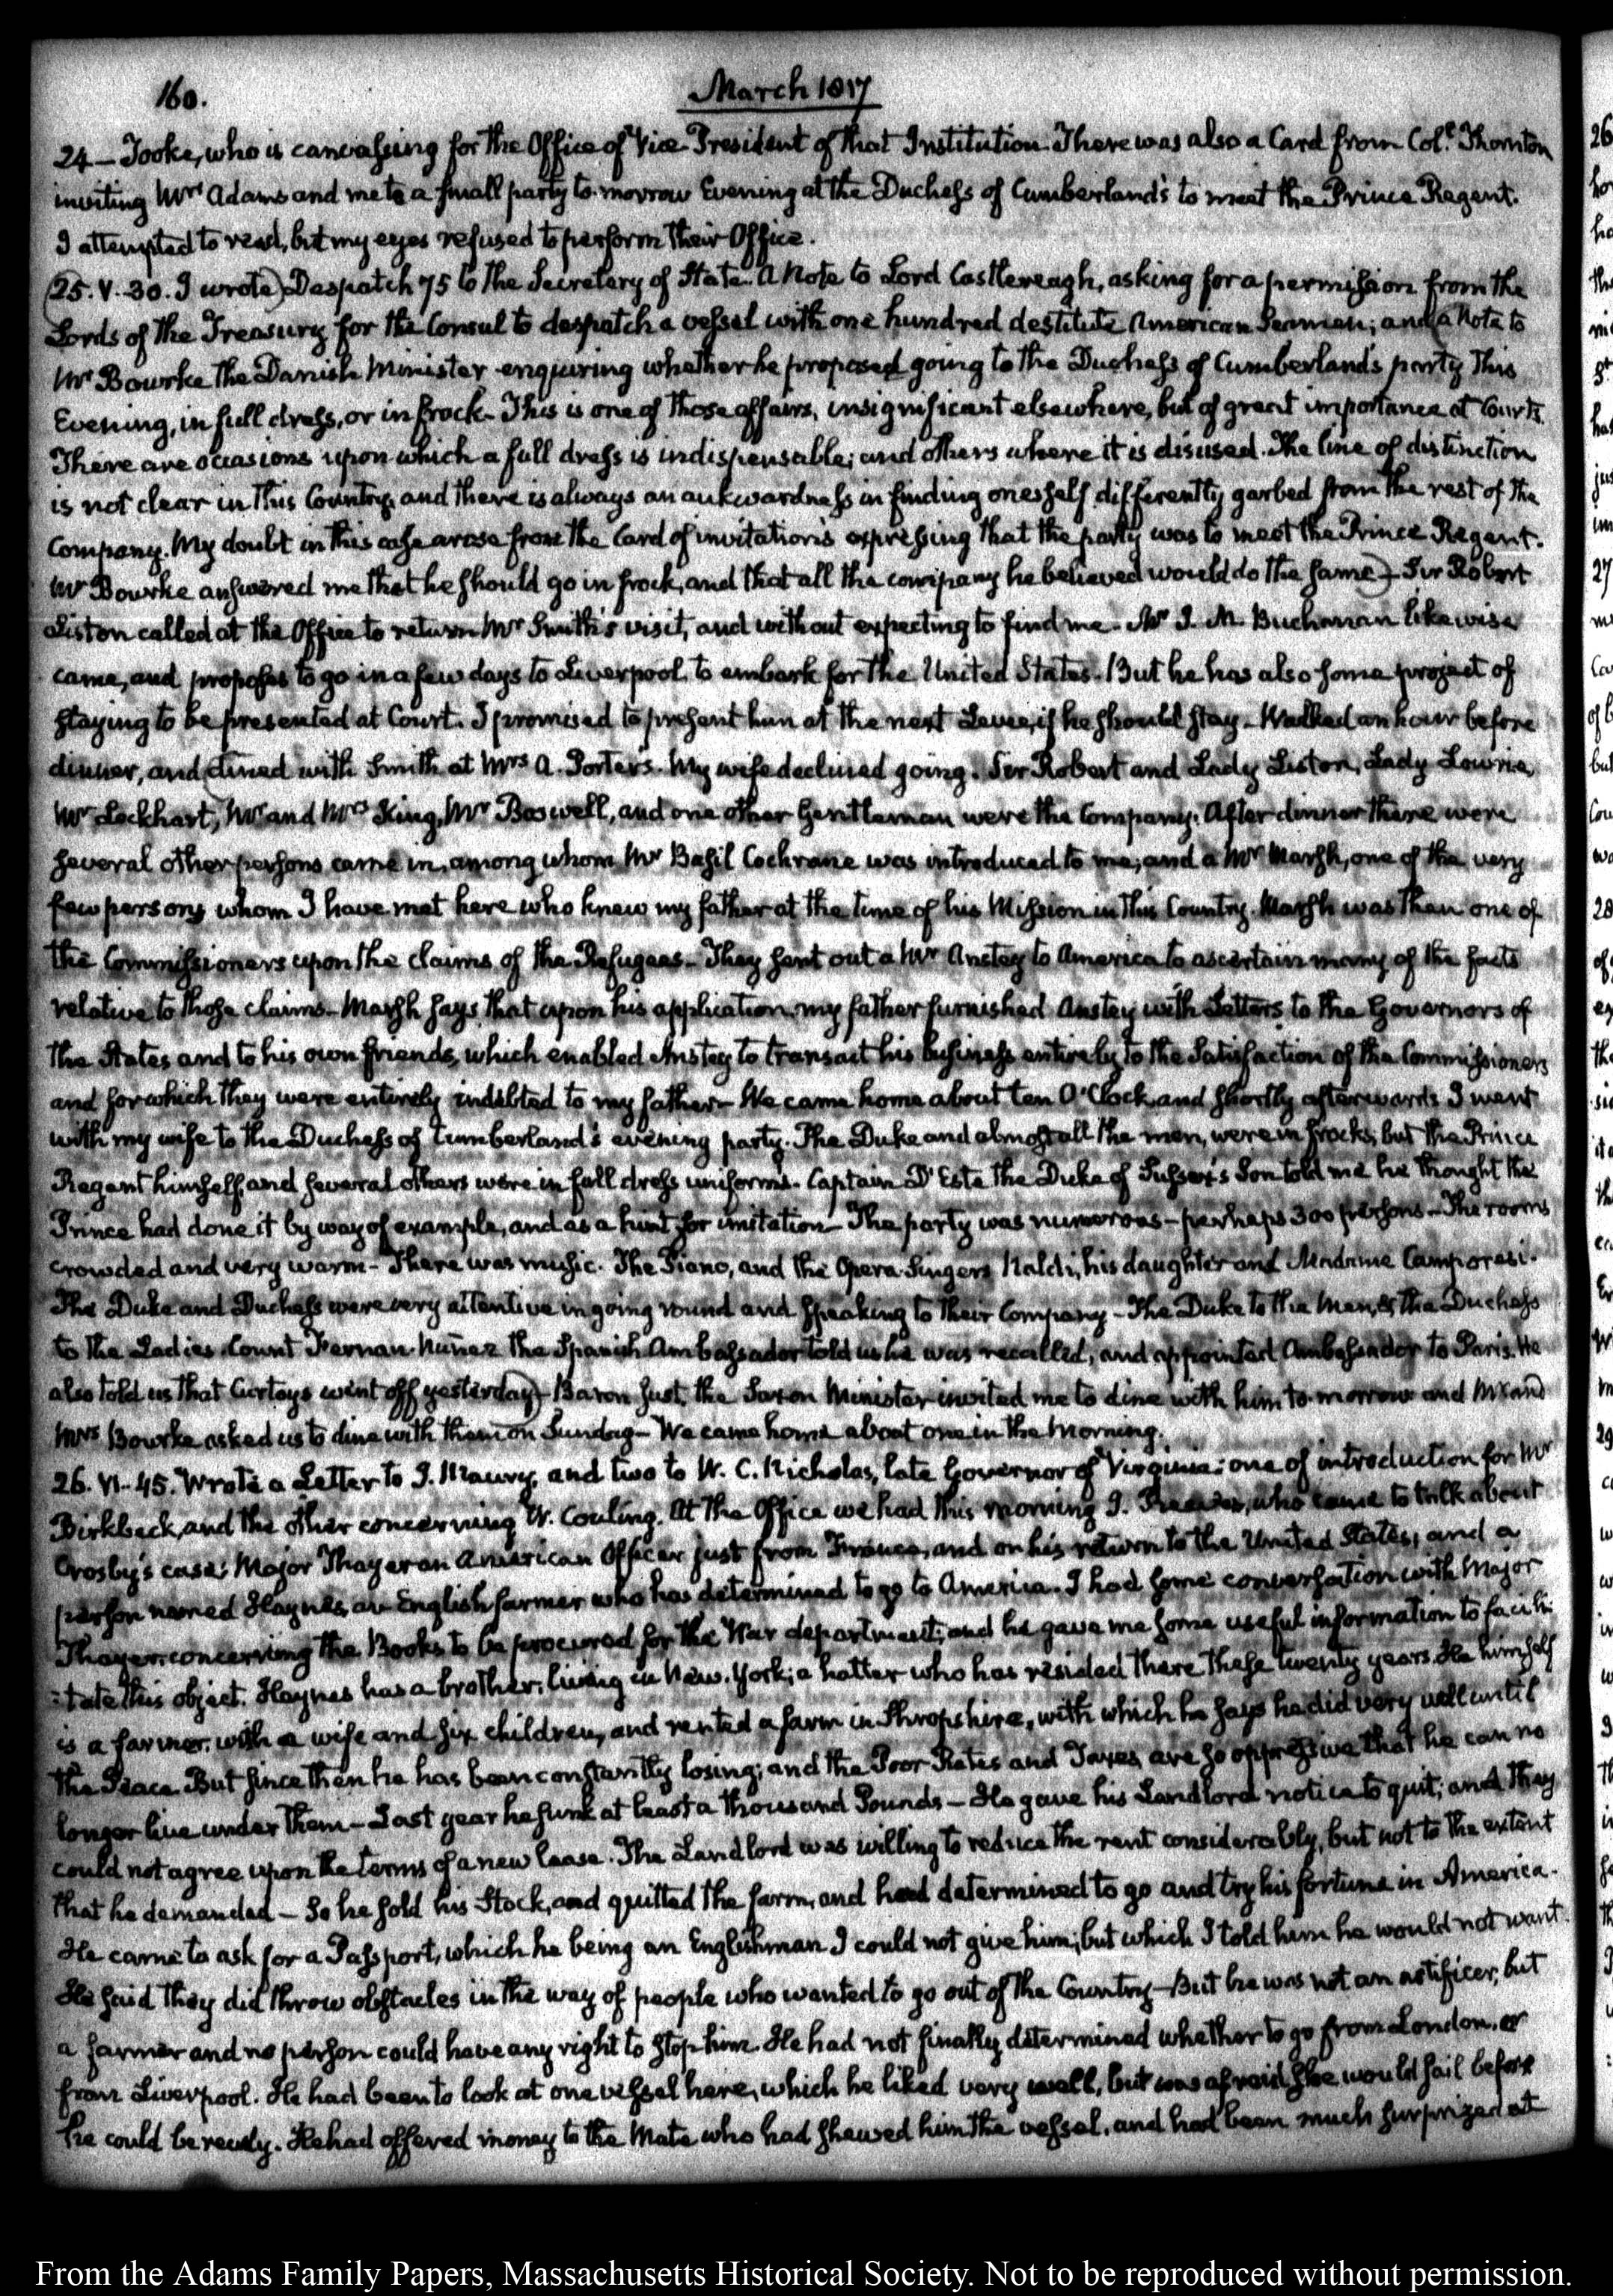 160.
March 1817
24 — Tooke, who is canvassing for the Office of Vice-President of that Institution. There was also a Card from Col.l Thornton
inviting Mrs Adams and me to a small party to-morrow Evening at the Duchess of Cumberland's to meet the Prince Regent.
I attempted to read, but my eyes refused to perform their Office.
(25. V. 30. I wrote) Despatch 75 to the Secretary of State. A Note to Lord Castlereagh, asking for a permission from the
Lords of the Treasury for the Consul to despatch a vessel with one hundred destitute American Seamen; and (a Note to
Mr Bourke the Danish Minister enquiring whether he proposed going to the Duchess of Cumberland's party this
Evening, in full dress, or in frock. This is one of those affairs, insignificant elsewhere, but of great importance at Courts.
There are occasions upon which a full dress is indispensable; and others where it is disused. The line of distinction
is not clear in this Country, and there is always an aukwardness in finding oneself differently garbed from the rest of the
Company. My doubt in this case arose from the Card of invitation's expressing that the party was to meet the Prince Regent.
Mr Bourke answered me that he should go in frock, and that all the company he believed would do the same) — Sir Robert
Liston called at the Office to return Mr Smith's visit, and without expecting to find me. Mr J. M. Buchanan likewise
came, and proposes to go in a few days to Liverpool to embark for the United States. But he has also some project of
staying to be presented at Court. I promised to present him at the next Levee, if he should stay — Walked an hour before
dinner, and (dined with Smith at Mrs A. Porter's. My wife declined going. Sir Robert and Lady Liston, Lady Lowrie,
Mr Lockhart, Mr and Mrs King, Mr Boswell, and one other Gentleman were the Company. After dinner there were
several other persons came in, among whom Mr Basil Cochrane was introduced to me; and a Mr Marsh, one of the very
few persons whom I have met here who knew my father at the time of his Mission in this Country. Marsh was then one of
the Commissioners upon the claims of the Refugees — They sent out a Mr Anstey to America to ascertain many of the facts
relative to those claims — Marsh says that upon his application, my father furnished Anstey with Letters to the Governors of
the States and to his own friends, which enabled Anstey to transact his business entirely to the Satisfaction of the Commissioners
and for which they were entirely indebted to my father — We came home about ten O'Clock and shortly afterwards I went
with my wife to the Duchess of Cumberland's evening party. The Duke and almost all the men, were in frocks, but the Prince
Regent himself, and several others were in full dress uniforms. Captain D'Este the Duke of Sussex's Son told me he thought the
Prince had done it by way of example, and as a hint for imitation — The party was numerous — perhaps 300 persons — The rooms
crowded and very warm — There was music. The Piano, and the Opera Singers Naldi, his daughter and Madame Camporesi.
The Duke and Duchess were very attentive in going round and speaking to their Company — The Duke to the Men, & the Duchess
to the Ladies. Count Fernan-Nuñez the Spanish Ambassador told us he was recalled, and appointed Ambassador to Paris. He
also told us that Curtoys went off yesterday) — Baron Just, the Saxon Minister invited me to dine with him to-morrow and Mr and
Mrs Bourke asked us to dine with them on Sunday — We came home about one in the Morning.
26. VI. 45. Wrote a Letter to J. Maury, and two to W. C. Nicholas, late Governor of Virginia: one of introduction for Mr
Birkbeck, and the other concerning W. Couling. At the Office we had this morning J. Reeves, who came to talk about
Crosby's case; Major Thayer an American Officer just from France, and on his return to the United States; and a
person named Haynes, an English farmer who has determined to go to America. I had some conversation with Major
Thayer concerning the Books to be procured for the War department; and he gave me some useful information to facili-
:tate this object. Haynes has a brother, living in New-York; a hatter who has resided there these twenty years. He himself
is a farmer, with a wife and six children, and rented a farm in Shropshire, with which he says he did very well until
the Peace. But since then he has been constantly losing; and the Poor-Rates and Taxes, are so oppressive that he can no
longer live under them — Last year he sunk at least a thousand Pounds — He gave his Landlord notice to quit; and they
could not agree upon the terms of a new lease. The Landlord was willing to reduce the rent considerably, but not to the extent
that he demanded — So he sold his Stock, and quitted the farm, and had determined to go and try his fortune in America.
He came to ask for a Passport, which he being an Englishman I could not give him; but which I told him he would not want.
He said they did throw obstacles in the way of people who wanted to go out of the Country — But he was not an artificer, but
a farmer and no person could have any right to stop him. He had not finally determined whether to go from London, or
from Liverpool. He had been to look at one vessel here, which he liked very well, but was afraid she would sail before
he could be ready. He had offered money to the Mate who had shewed him the vessel, and had been much surprized at
From the Adams Family Papers, Massachusetts Historical Society. Not to be reproduced without permission.